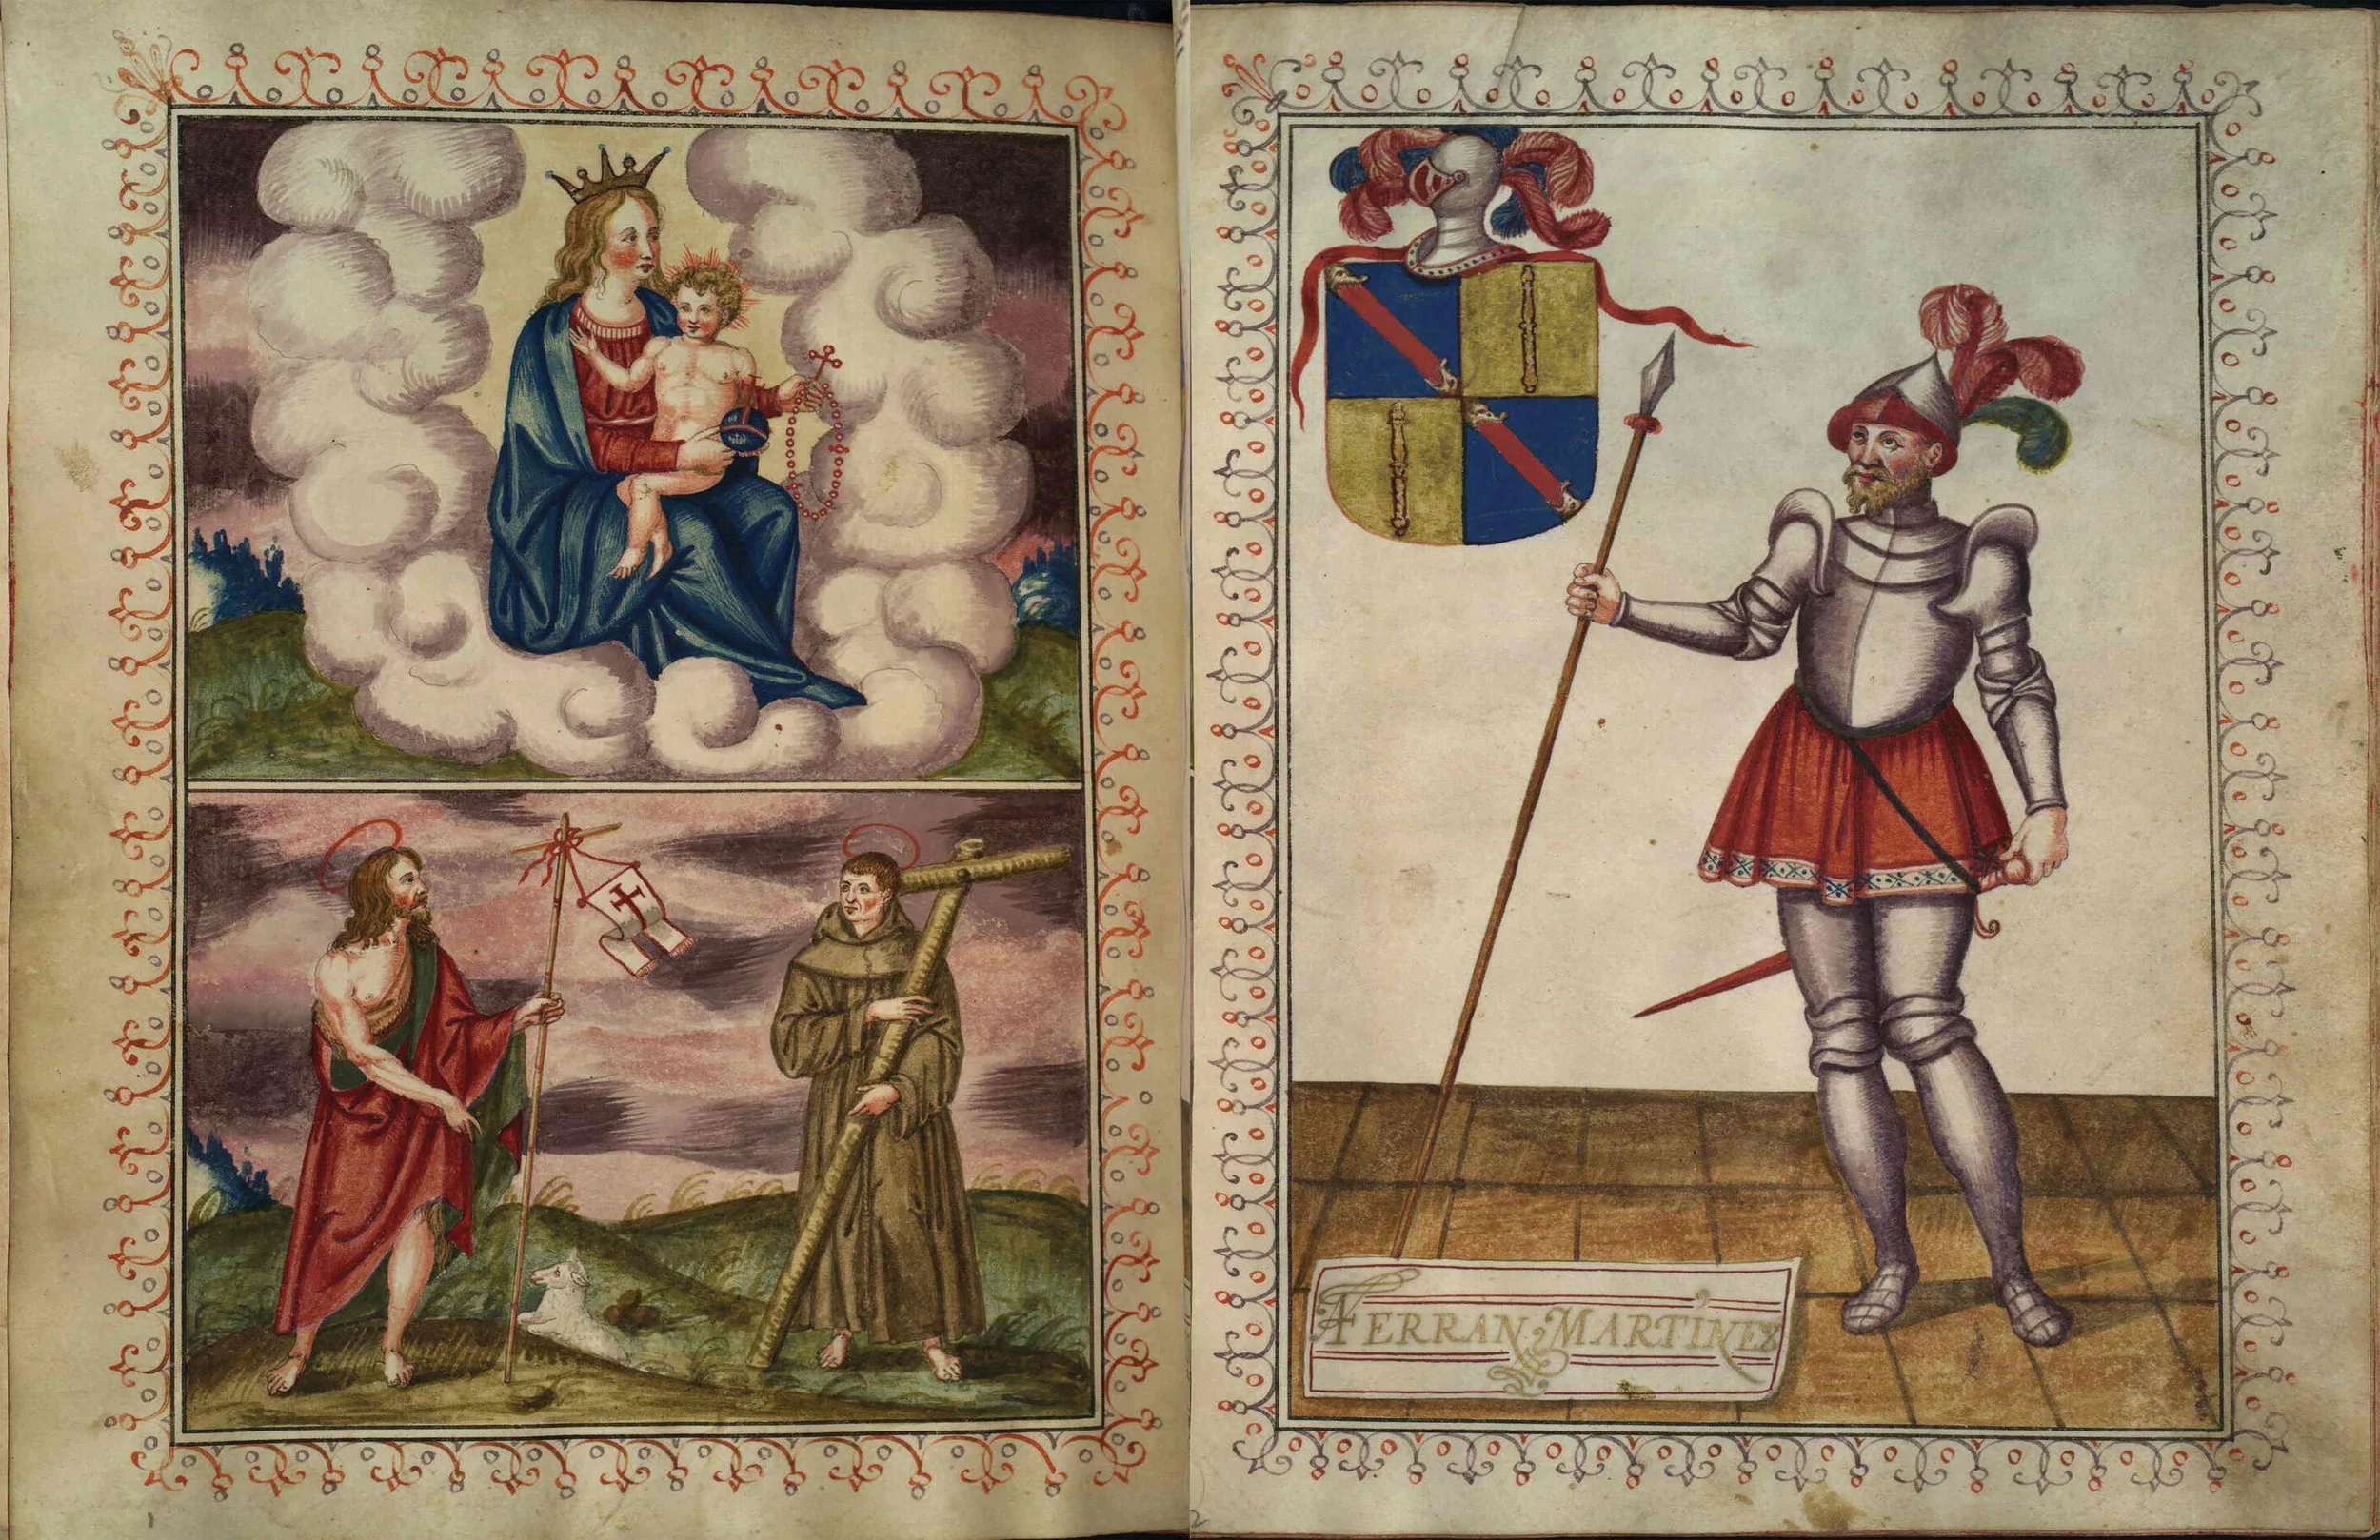 FERRAN MARTINEZ
2